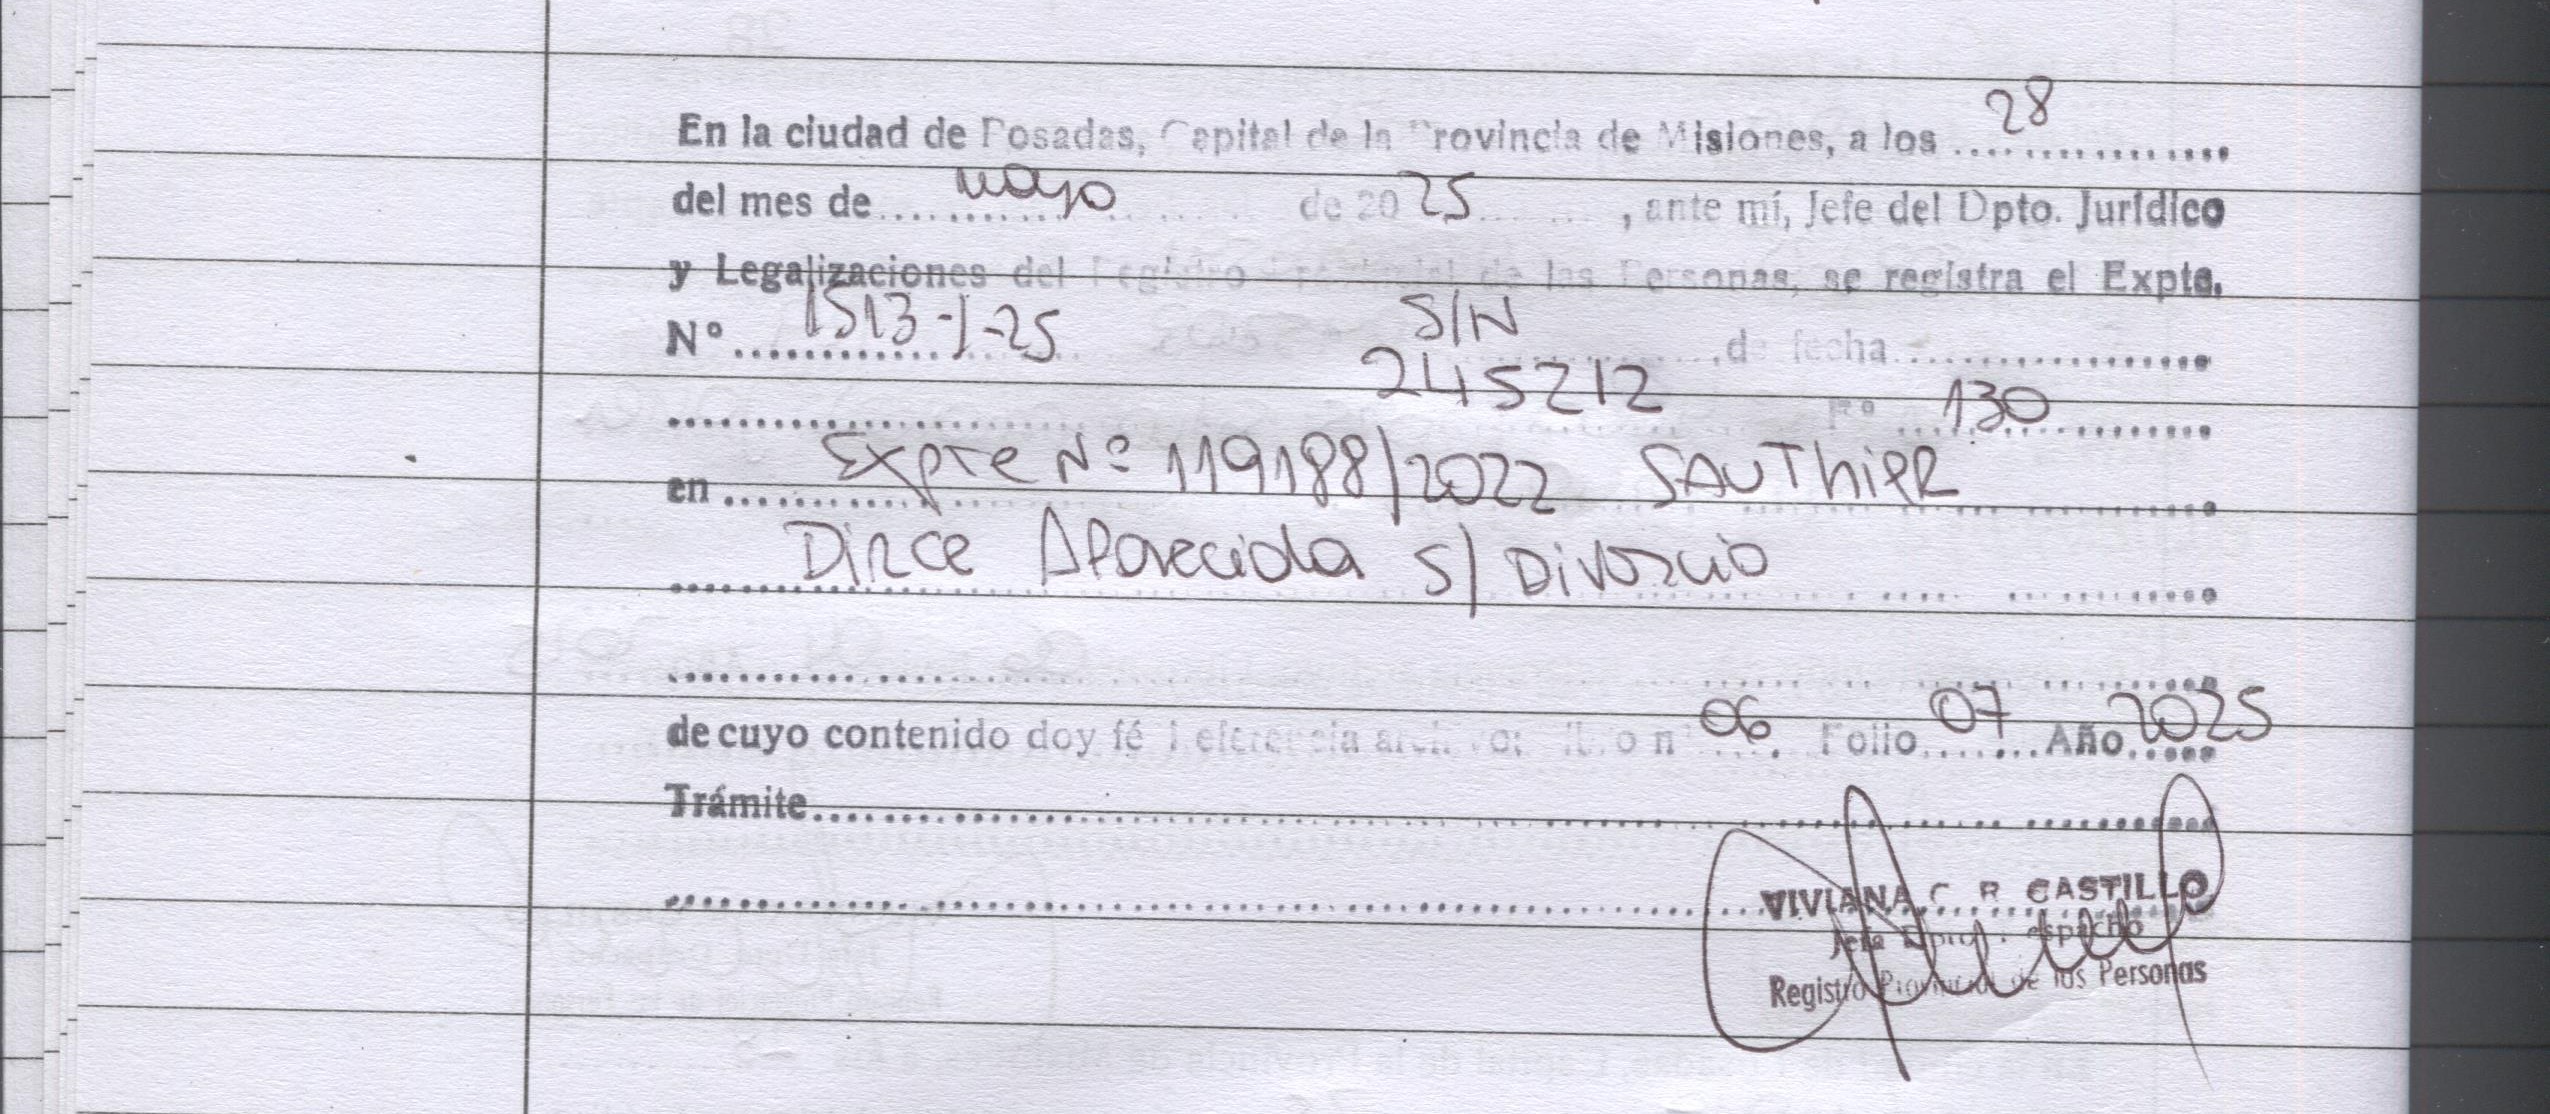 En la ciudad de Posadas, Capital de la Provincia de Misiones, a los 28
del mes de mayo de 2025, ante mí, Jefe del Dpto. Jurídico
y Legalizaciones del Registro Provincial de las Personas, se registra el Expte.
Nº 1513-I-25 S/N , de fecha
245212 Fº 130
en Expte Nº 119188/2022 SAUThieR
Dirce Aparecida S/ Divorcio
de cuyo contenido doy fé Referencia archivo: libro nº 06. Folio 07 Año 2025
Trámite
VIVIANA C. R. CASTILLO
Jefa Dpto. Despacho
Registro Provincial de las Personas